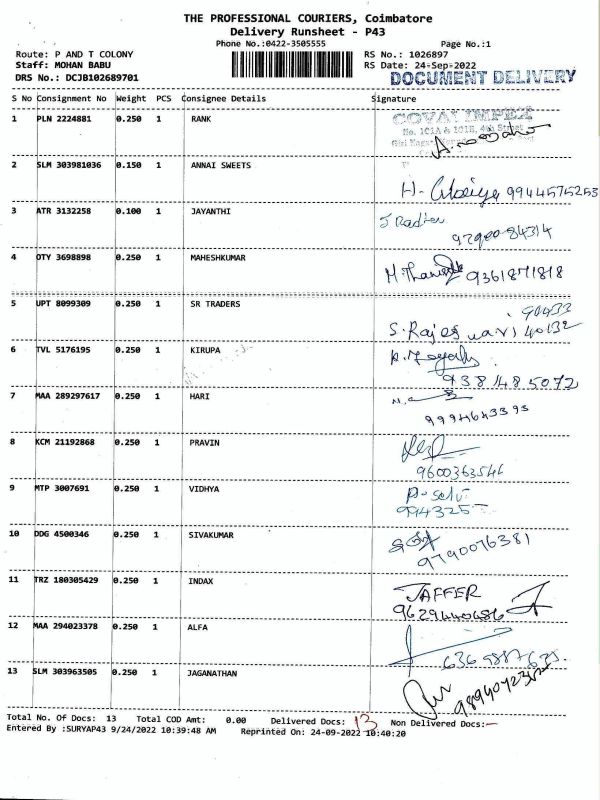 THE PROFESSIONAL COURIERS, Coimbatore
Delivery Runsheet - P43
Phone No.:0422-3505555 Page No.:1
Route: P AND T COLONY RS No.: 1026897
Staff: MOHAN BABU RS Date: 24-Sep-2022
DRS No.: DCJB102689701 DOCUMENT DELIVERY
S No Consignment No Weight PCS Consignee Details Signature
1 PLN 2224881 0.250 1 RANK COVAI IMPEX
No. 101A & 101B, 4th Street
2 SLM 303981036 0.150 1 ANNAI SWEETS H. 9944575253
3 ATR 3132258 0.100 1 JAYANTHI
9790084314
4 OTY 3698898 0.250 1 MAHESHKUMAR 9361871818
5 UPT 8099309 0.250 1 SR TRADERS 90433
S. Rajeswari 40132
6 TVL 5176195 0.250 1 KIRUPA
9381485072
7 MAA 289297617 0.250 1 HARI
9994643393
8 KCM 21192868 0.250 1 PRAVIN
9600363546
9 MTP 3007691 0.250 1 VIDHYA P-selvi
994325
10 DDG 4500346 0.250 1 SIVAKUMAR 9790076381
11 TRZ 180305429 0.250 1 INDAX JAFFER
9629440486
12 MAA 294023378 0.250 1 ALFA
13 SLM 303963505 0.250 1 JAGANATHAN
Total No. Of Docs: 13 Total COD Amt: 0.00 Delivered Docs: 13 Non Delivered Docs:-
Entered By :SURYAP43 9/24/2022 10:39:48 AM Reprinted On: 24-09-2022 10:40:20